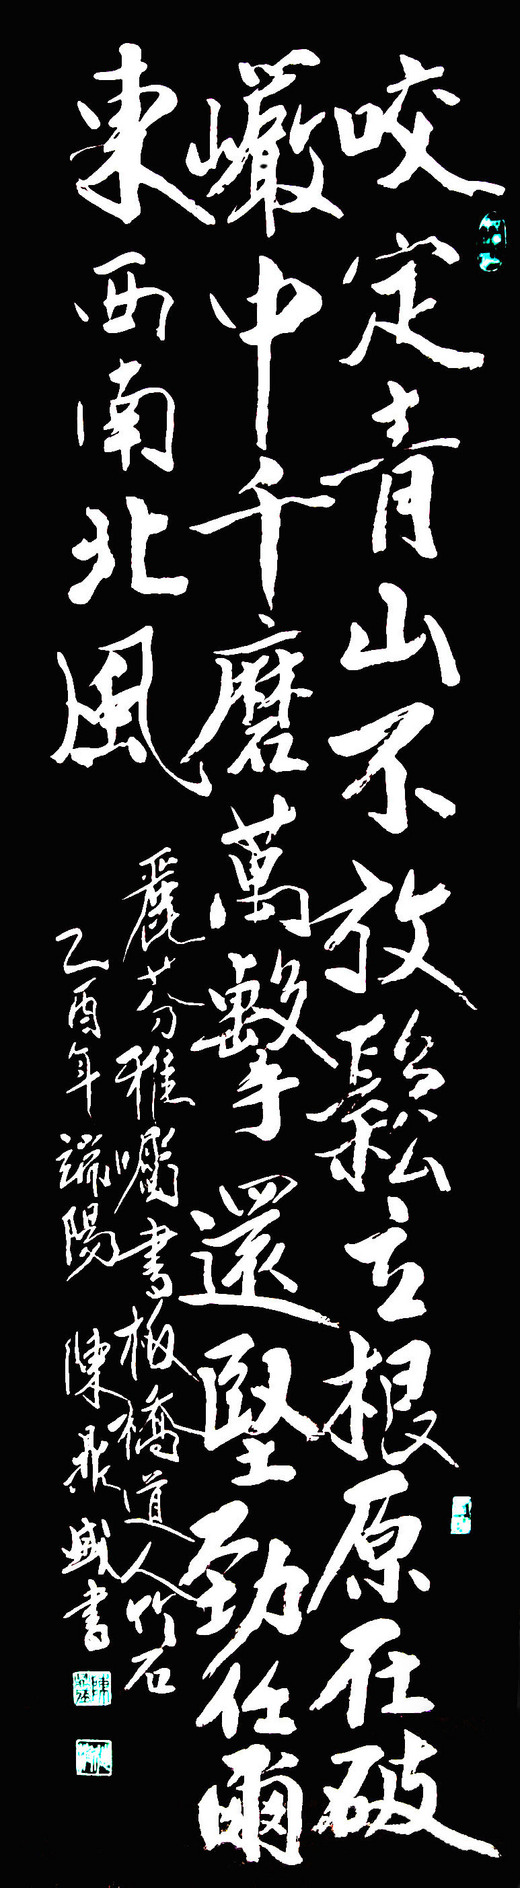 咬定青山不放鬆立根原在破
巖中千磨萬擊還堅勁任爾
東西南北風
麗芬雅囑書板橋道人竹石
乙酉年端陽 陳鼎盛書